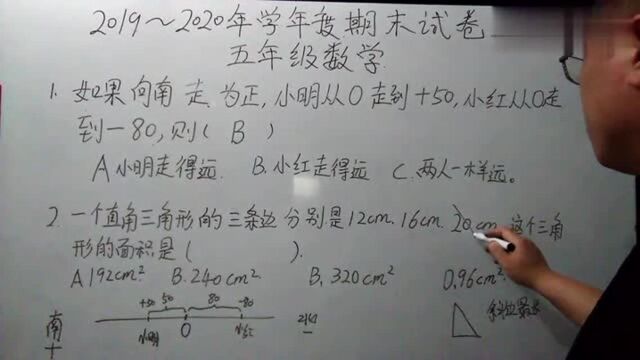 2019～2020年学年度期末试卷
五年级数学
1. 如果向南走为正,小明从0走到+50,小红从0走
到-80,则( B )
A小明走得远. B.小红走得远 C.两人一样远。
2. 一个直角三角形的三条边分别是12cm.16cm.20cm 这个三角
形的面积是( ).
A192cm² B.240cm² B.320cm² D.96cm²
+50 50 80 -80
南 小明 0 小红 斜边最长
+